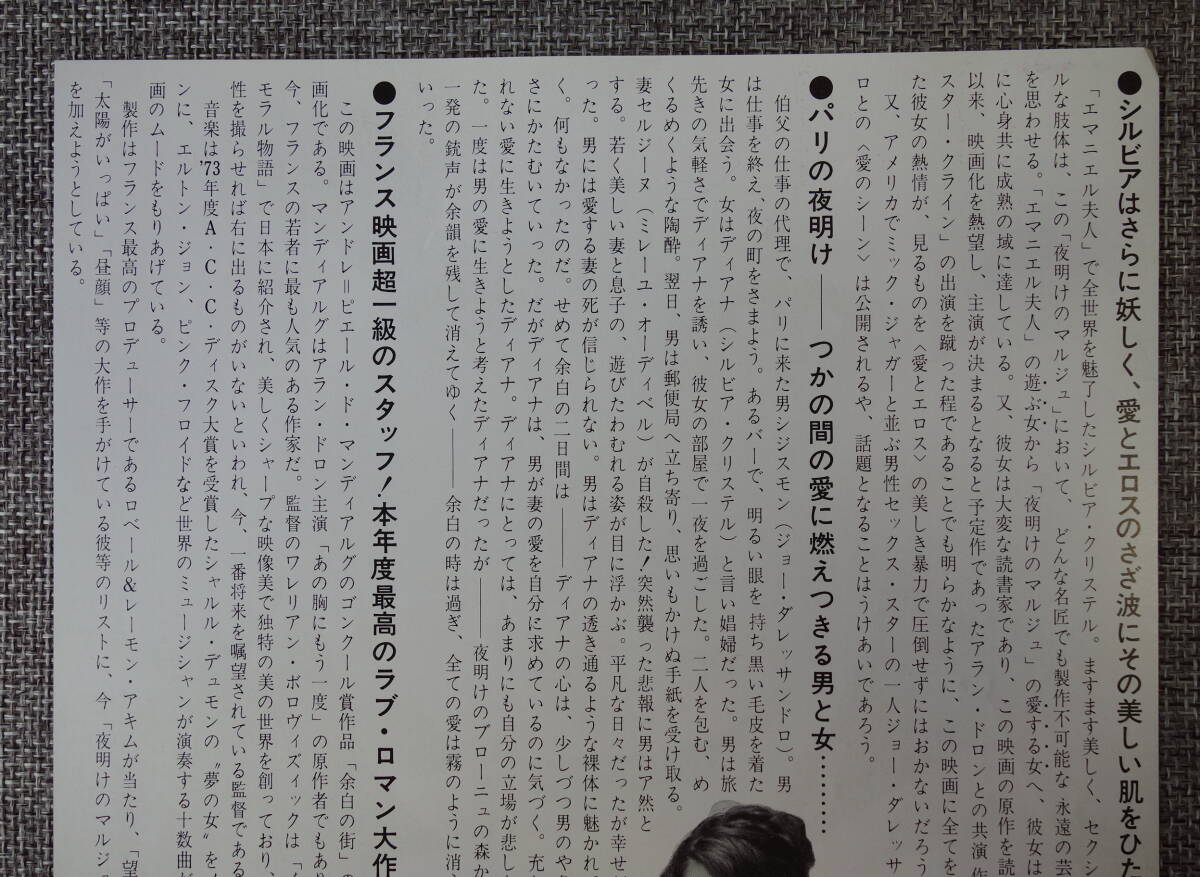 ●シルビアはさらに妖しく、愛とエロスのさざ波にその美しい肌をひた
「エマニエル夫人」で全世界を魅了したシルビア・クリステル。ますます美しく、セクシ
ルな肢体は、この「夜明けのマルジュ」において、どんな名匠でも製作不可能な永遠の芸
を思わせる。「エマニエル夫人」の遊ぶ女から「夜明けのマルジュ」の愛する女へ、彼女は
に心身共に成熟の域に達している。又、彼女は大変な読書家であり、この映画の原作を読
以来、映画化を熱望し、主演が決まるとなると予定作であったアラン・ドロンとの共演作
スター・クライン」の出演を蹴った程であることでも明らかなように、この映画に全てを
た彼女の熱情が、見るものを〈愛とエロス〉の美しき暴力で圧倒せずにはおかないだろう
又、アメリカでミック・ジャガーと並ぶ男性セックス・スターの一人ジョー・ダレッサ
ロとの〈愛のシーン〉は公開されるや、話題となることはうけあいであろう。
●パリの夜明け――つかの間の愛に燃えつきる男と女………
伯父の仕事の代理で、パリに来た男シジスモン（ジョー・ダレッサンドロ）。男
は仕事を終え、夜の町をさまよう。あるバーで、明るい眼を持ち黒い毛皮を着た
女に出会う。女はディアナ（シルビア・クリステル）と言い娼婦だった。男は旅
先きの気軽さでディアナを誘い、彼女の部屋で一夜を過ごした。二人を包む、め
くるめくような陶酔。翌日、男は郵便局へ立ち寄り、思いもかけぬ手紙を受け取る。
妻セルジーヌ（ミレーユ・オーディベル）が自殺した！突然襲った悲報に男はア然と
する。若く美しい妻と息子の、遊びたわむれる姿が目に浮かぶ。平凡な日々だったが幸せ
った。男には愛する妻の死が信じられない。男はディアナの透き通るような裸体に魅かれ
く。何もなかったのだ。せめて余白の二日間は――ディアナの心は、少しづつ男のや
さにかたむいていった。だがディアナは、男が妻の愛を自分に求めているのに気づく。充
れない愛に生きようとしたディアナ。ディアナにとっては、あまりにも自分の立場が悲し
た。一度は男の愛に生きようと考えたディアナだったが――夜明けのブローニュの森か
一発の銃声が余韻を残して消えてゆく――余白の時は過ぎ、全ての愛は霧のように消
いった。
●フランス映画超一級のスタッフ！本年度最高のラブ・ロマン大作
この映画はアンドレ＝ピエール・ド・マンディアルグのゴンクール賞作品「余白の街」の
画化である。マンディアルグはアラン・ドロン主演「あの胸にもう一度」の原作者でもあり
今、フランスの若者に最も人気のある作家だ。監督のワレリアン・ボロヴィズィックは「
モラル物語」で日本に紹介され、美しくシャープな映像美で独特の美の世界を創っており、
性を撮らせれば右に出るものがいないといわれ、今、一番将来を嘱望されている監督である
音楽は'73年度A・C・C・ディスク大賞を受賞したシャルル・デュモンの〝夢の女〟を
ンに、エルトン・ジョン、ピンク・フロイドなど世界のミュージシャンが演奏する十数曲が
画のムードをもりあげている。
製作はフランス最高のプロデューサーであるロベール&レーモン・アキムが当たり、「望
「太陽がいっぱい」「昼顔」等の大作を手がけている彼等のリストに、今「夜明けのマルジ
を加えようとしている。